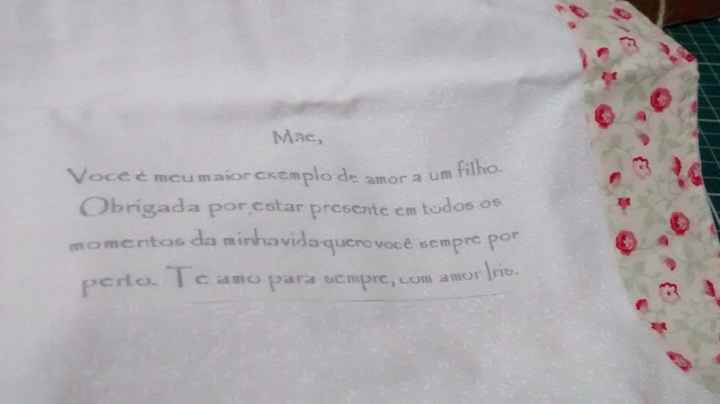 Mãe,
Você é meu maior exemplo de amor a um filho.
Obrigada por estar presente em todos os
momentos da minha vida quero você sempre por
perto. Te amo para sempre, com amor Iris.